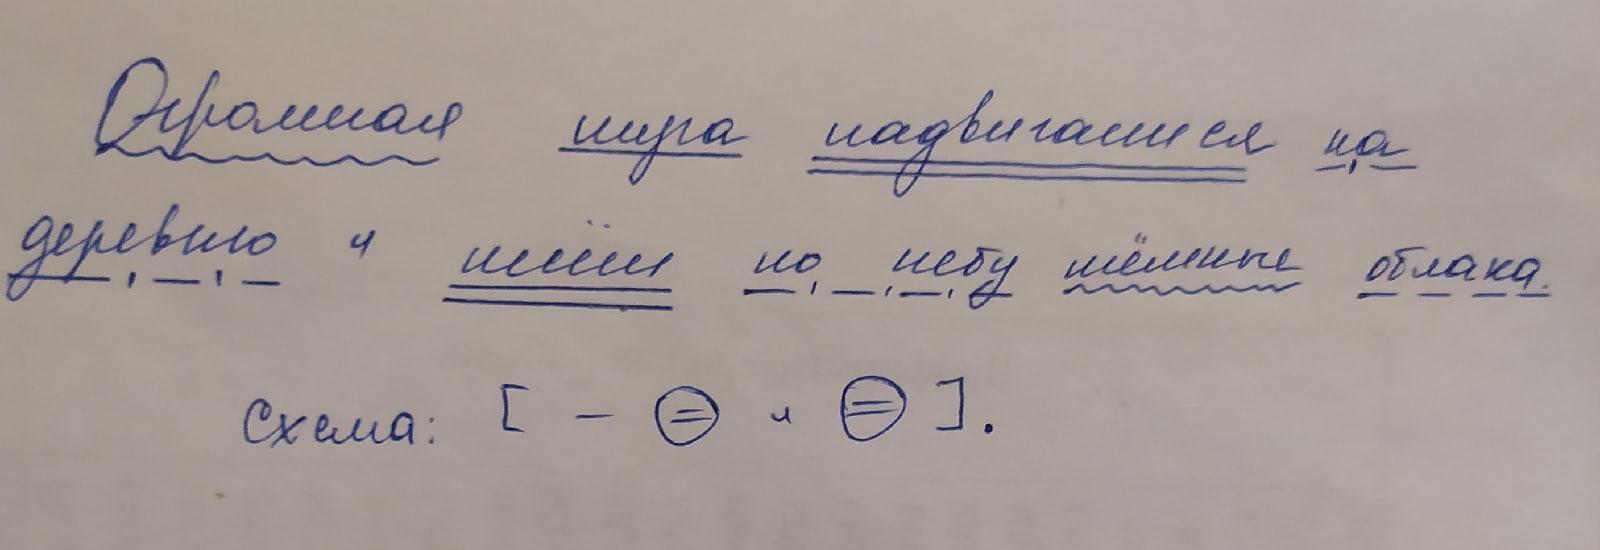 Огромная туча надвигается на
деревню и шлёт по небу тёмные облака.
Схема: [ – = и = ].